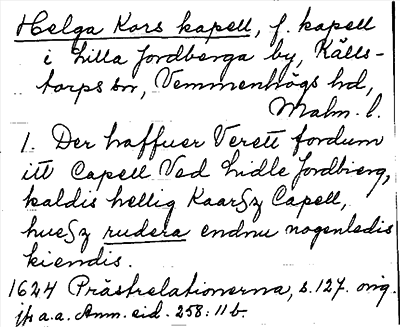 Helga Kors kapell, f. kapell
i Lilla Jordberga by, Källs-
torps sn, Vemmenhögs hd,
Malm. l.
1. Der haffuer Verett fordum
itt Capell Ved Lidle Jordbierg,
kaldis hellig Kaarßz Capell,
hueßz rudera endnu nogenledis
kiendis.
1624 Prästrelationerna, s. 127. orig.
jfr a.a. Anm. eid. 258: 11 b.